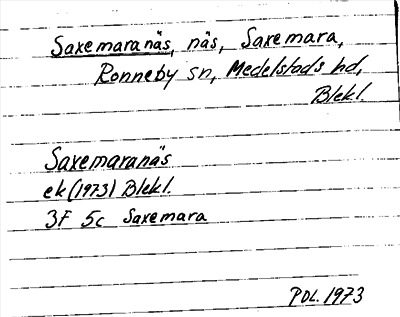 Saxemaranäs, näs, Saxemara,
Ronneby sn, Medelstads hd,
Blekl.
Saxemaranäs
ek (1973) Blekl.
3F 5c Saxemara
PDL. 1973